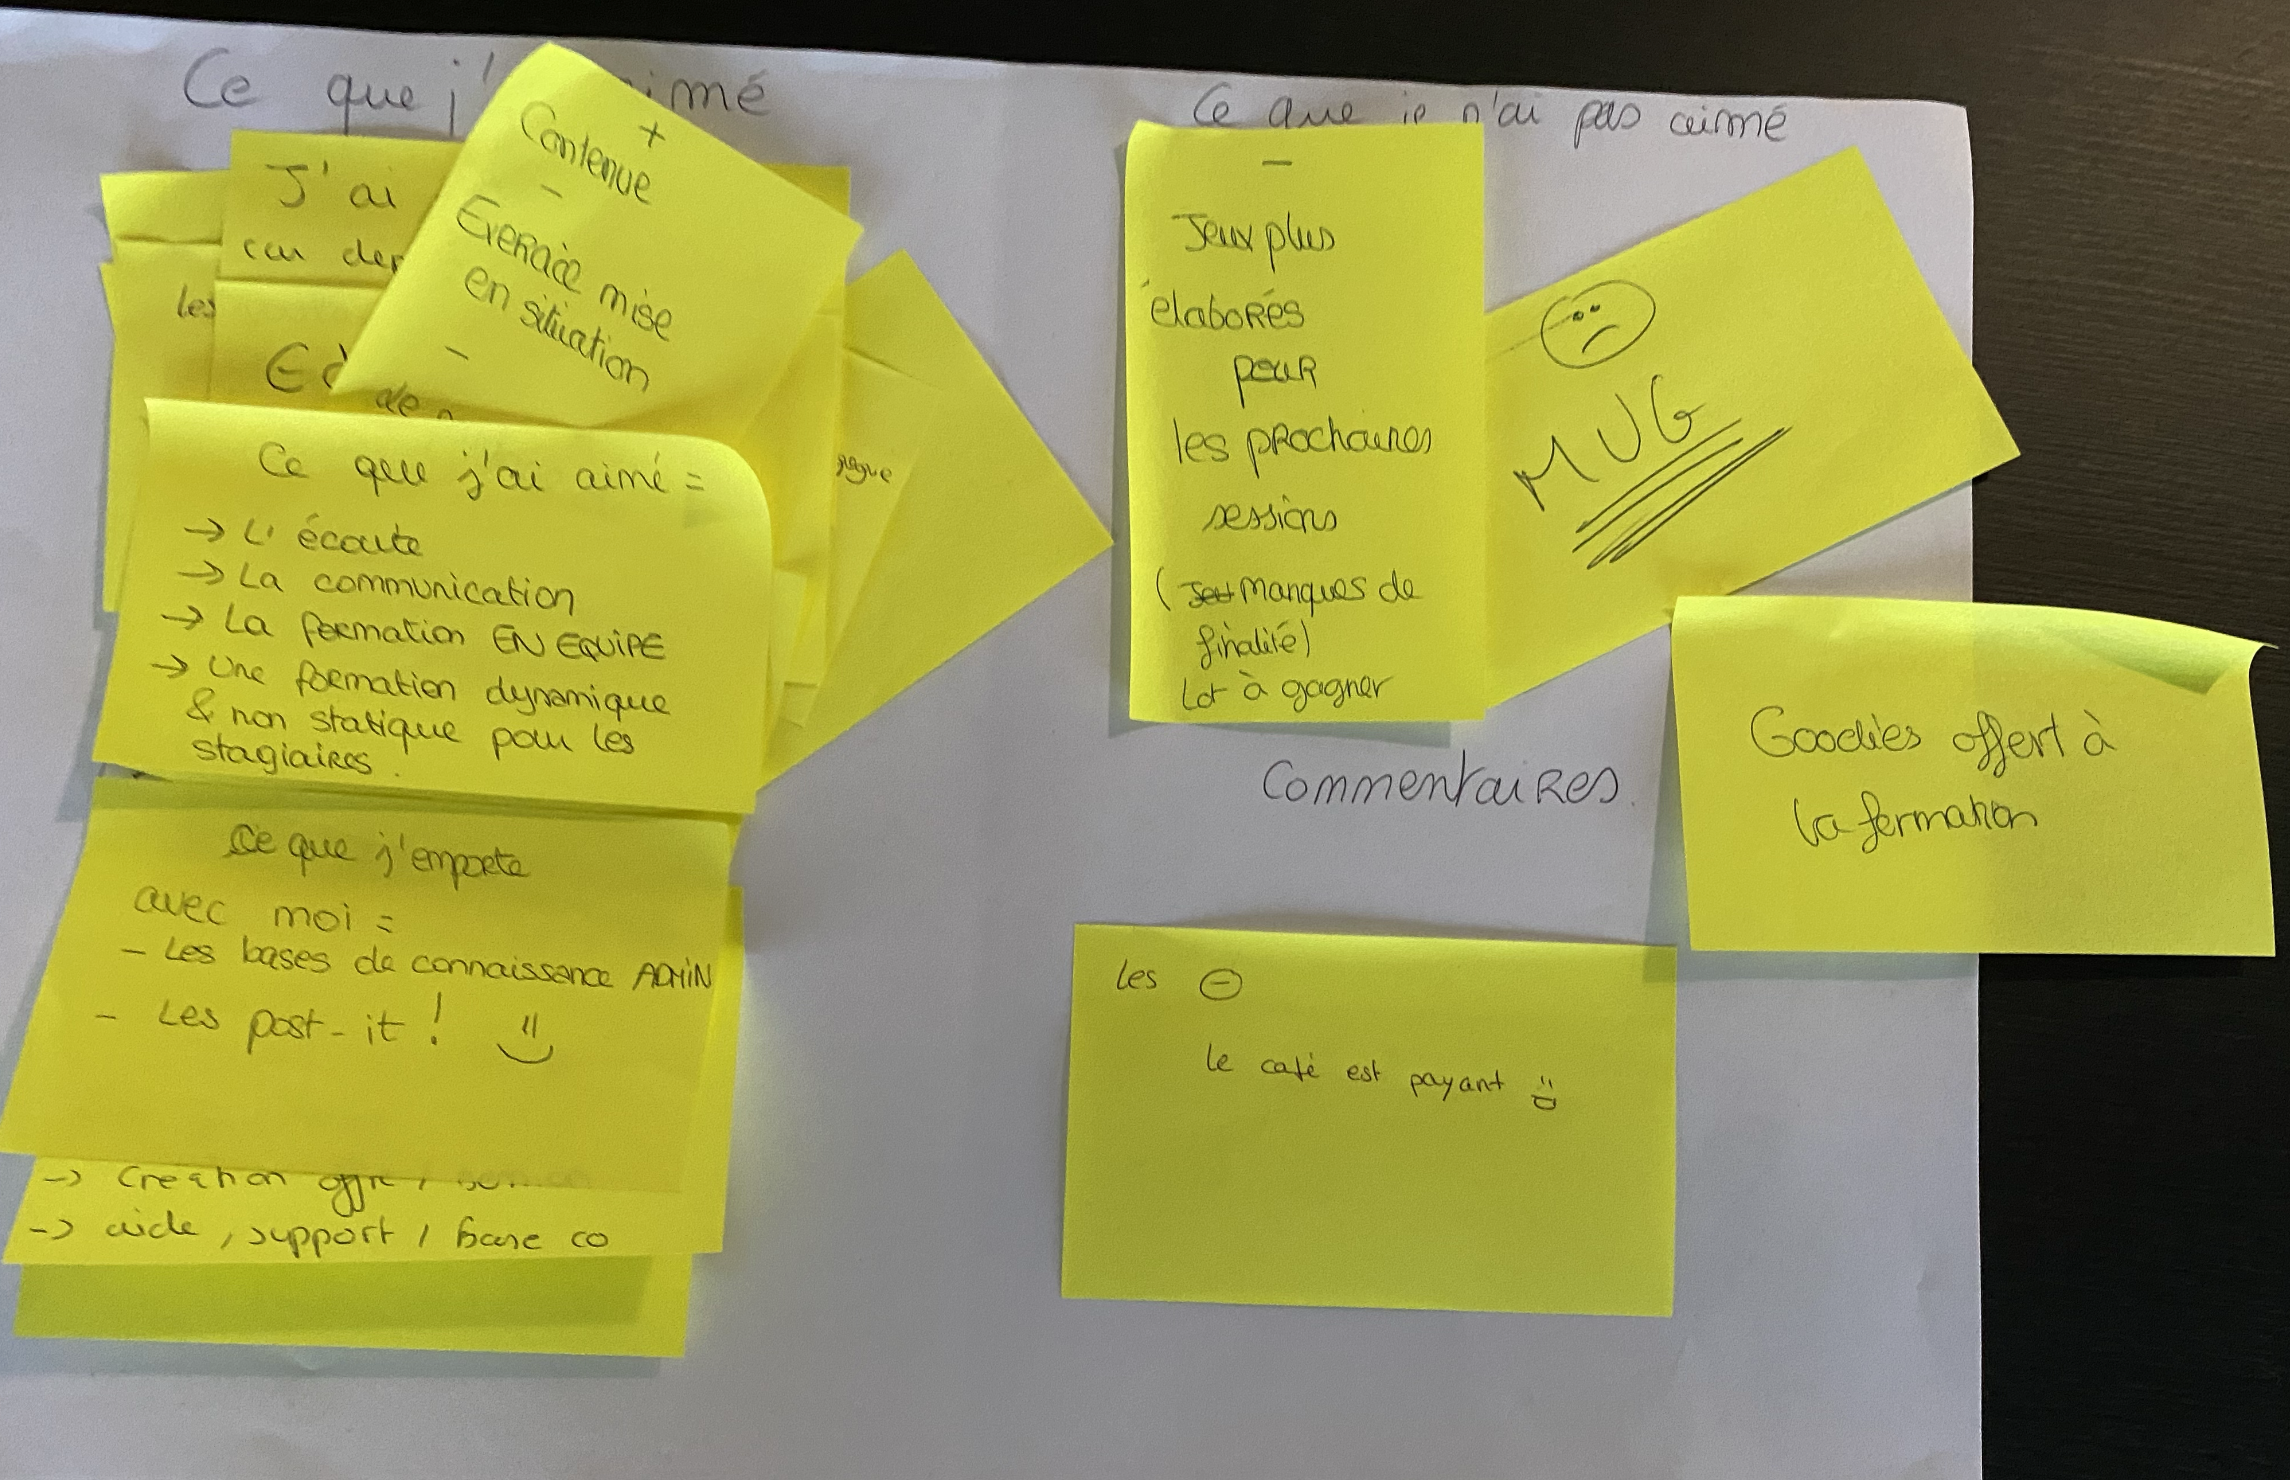 Ce que j' imé
+
Contenue
-
Exercice mise
en situation
-
J'ai
les
Ce que j'ai aimé =
→ L'écoute
→ La communication
→ La formation EN EQUIPE
→ Une formation dynamique
& non statique pour les
stagiaires.
Ce que j'emporte
avec moi =
- Les bases de connaissance ADMIN
- Les post-it !
-> Creation offre /
-> aide, support / base co
Ce que je n'ai pas aimé
-
Jeux plus
élaborés
pour
les prochaines
sessions
(Jeu manques de
finalité)
Lot à gagner
MUG
Commentaires.
Goodies offert à
la formation
les -
le café est payant